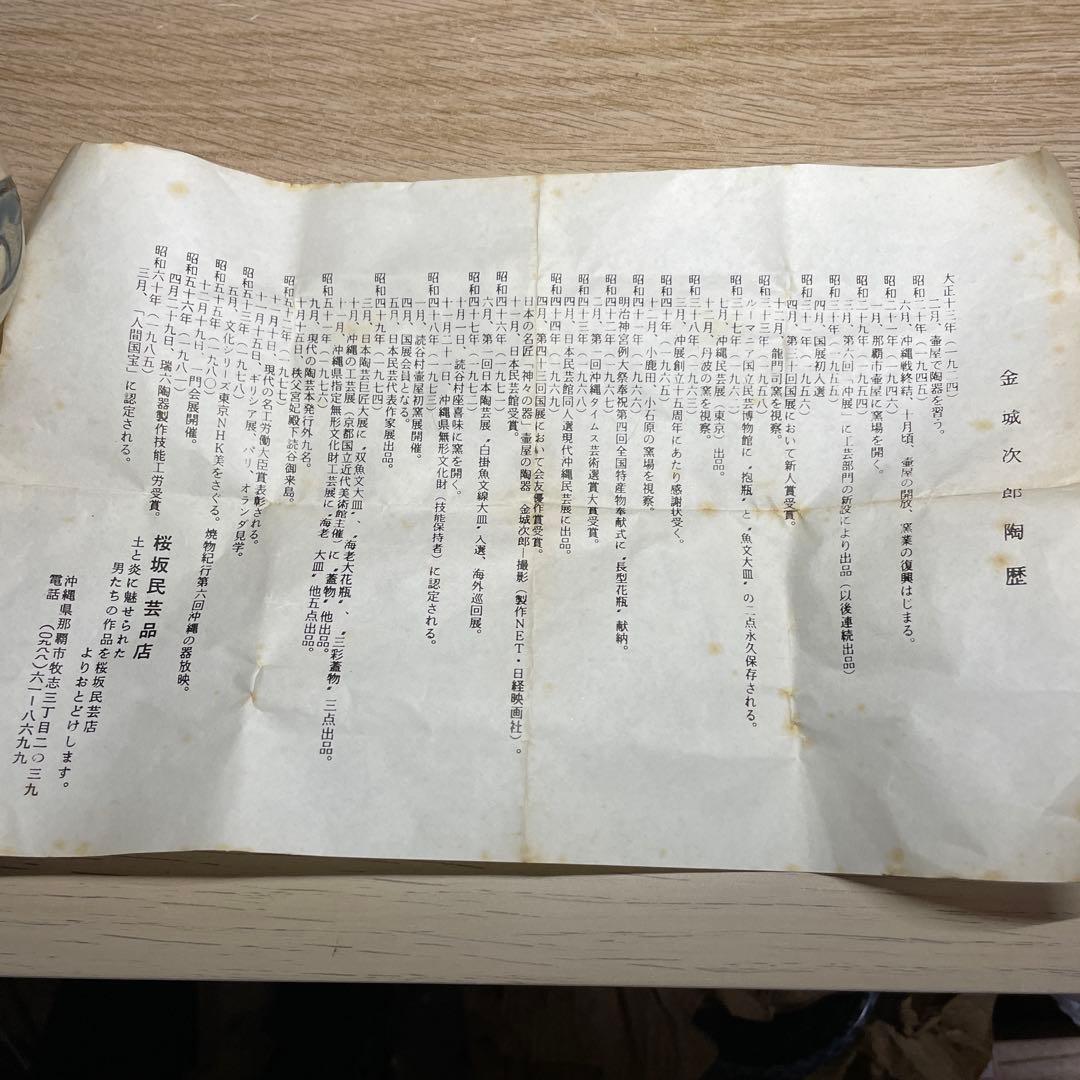 金城次郎陶歴
大正十三年(一九二四)
二月、壷屋で陶器を習う。
昭和二十年(一九四五)
六月、沖縄戦終結、十月頃、壷屋の開放、窯業の復興はじまる。
昭和二十一年(一九四六)
一月、那覇市壷屋に窯場を開く。
昭和二十九年(一九五四)
三月、第六回「沖展」に工芸部門の新設により出品(以後連続出品)
昭和三十年(一九五五)
四月、国展初入選
昭和三十一年(一九五六)
四月、第三十回国展において新人賞受賞。
十二月、龍門司窯を視察。
昭和三十三年(一九五八)
ルーマニア国立民芸博物館に〝抱瓶〟と〝魚文大皿〟の二点永久保存される。
昭和三十七年(一九六二)
七月、沖縄民芸展(東京)出品。
十二月、丹波の窯を視察。
昭和三十八年(一九六三)
三月、沖展創立十五周年にあたり感謝状受く。
昭和四十年(一九六五)
十二月、小鹿田、小石原の窯場を視察。
昭和四十一年(一九六六)
明治神宮例大祭奉祝第四回全国特産物奉献式に〝長型花瓶〟献納。
昭和四十二年(一九六七)
二月、第一回沖縄タイムス芸術選賞大賞受賞。
昭和四十三年(一九六八)
四月、日本民芸館同人選現代沖縄民芸展に出品。
昭和四十四年(一九六九)
四月、第四十三回国展において会友優作賞受賞。
日本の名匠「神々の器」壷屋の陶器 金城次郎―撮影(製作NET・日経映画社)。
十一月、日本民芸館賞受賞。
昭和四十六年(一九七一)
六月、第一回日本陶芸展〝白掛魚文線大皿〟入選、海外巡回展。
昭和四十七年(一九七二)
十月一日、読谷村座喜味に窯を開く。
十月二十一日、沖縄県無形文化財(技能保持者)に認定される。
昭和四十八年(一九七三)
一月、読谷村壷屋初窯展開催。
四月、国展会員となる。
五月、日本民芸代表作家展出品。
昭和四十九年(一九七四)
三月、日本陶芸巨匠大展に〝双魚文大皿〟、〝海老大花瓶〟、〝三彩蓋物〟三点出品。
十一月、沖縄の工芸展(京都国立近代美術館主催)に〝蓋物〟他出品。
昭和五十一年(一九七六)
九月、沖縄県指定無形文化財工芸展に〝海老 大皿〟他五点出品。
十月、現代の陶芸本発行外九名。
昭和五十二年(一九七七)
十月十五日、秩父宮妃殿下読谷御来島。
十一月一日、現代の名工労働大臣賞表彰される。
十一月十五日、ギリシア展、パリ、オランダ見学。
昭和五十三年(一九七八)
五月、文化シリーズ東京NHK美をさぐる。焼物紀行第六回沖縄の器放映。
昭和五十五年(一九八〇)
十二月十九日、一門会展開催。
昭和五十六年(一九八一)
四月二十九日、瑞六陶器製作技能工労受賞。
昭和六十年(一九八五)
三月、「人間国宝」に認定される。
桜坂民芸品店
土と炎に魅せられた
男たちの作品を桜坂民芸店
よりおとどけします。
沖縄県那覇市牧志三丁目二の三九
電話 (〇九八八)六一―八六九九